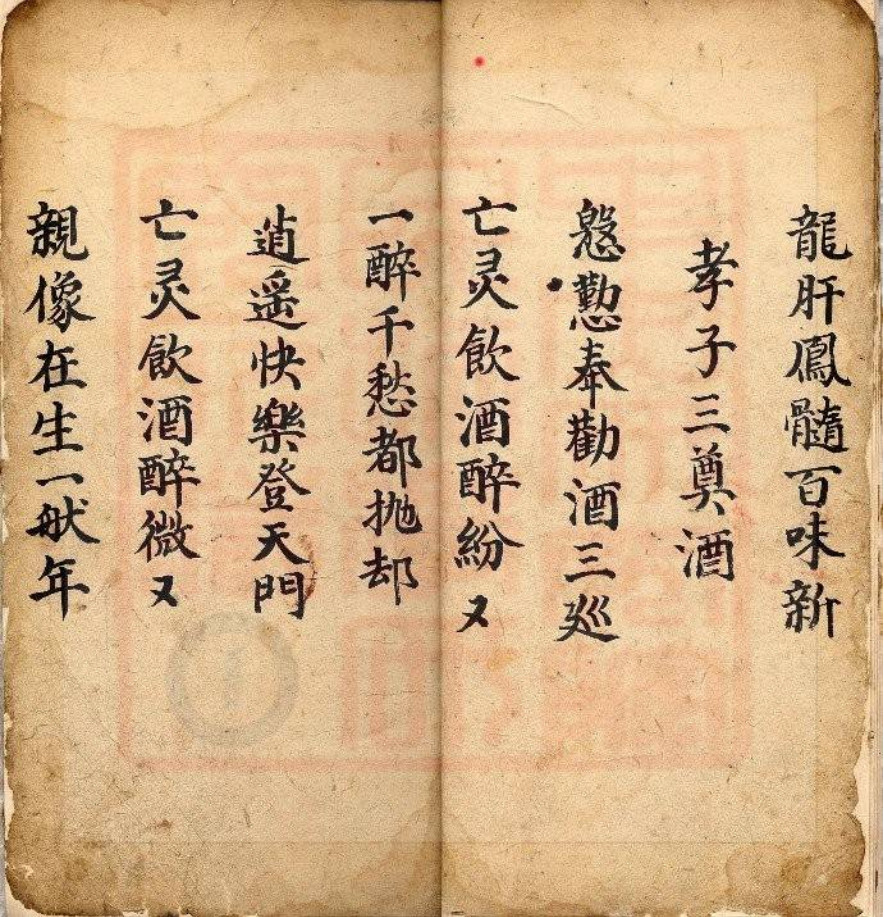 龍肝鳳髓百味新
孝子三奠酒
慇懃奉勸酒三巡
亡灵飲酒醉紛又
一醉千愁都抛却
逍遥快樂登天門
亡灵飲酒醉微又
親像在生一般年